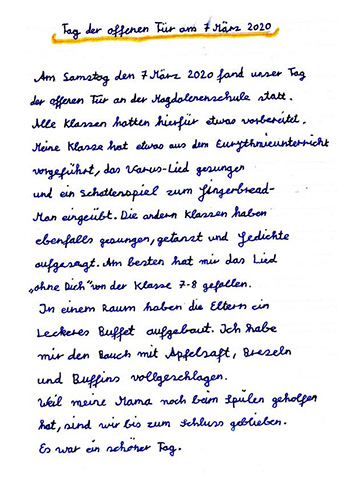 Tag der offenen Tür am 7 März 2020
Am Samstag den 7 März 2020 fand unser Tag
der offenen Tür an der Magdalenenschule statt.
Alle Klassen hatten hierfür etwas vorbereitet.
Meine Klasse hat etwas aus dem Eurythmieunterricht
vorgeführt, das Varus-Lied gesungen
und ein Schattenspiel zum Gingerbread-
Man eingeübt. Die andern Klassen haben
ebenfalls gesungen, getanzt und Gedichte
aufgesagt. Am besten hat mir das Lied
„ohne Dich" von der Klasse 7-8 gefallen.
In einem Raum haben die Eltern ein
Leckeres Buffet aufgebaut. Ich habe
mir den Bauch mit Apfelsaft, Brezeln
und Buffins vollgeschlagen.
Weil meine Mama noch beim Spülen geholfen
hat, sind wir bis zum Schluss geblieben.
Es war ein schöner Tag.